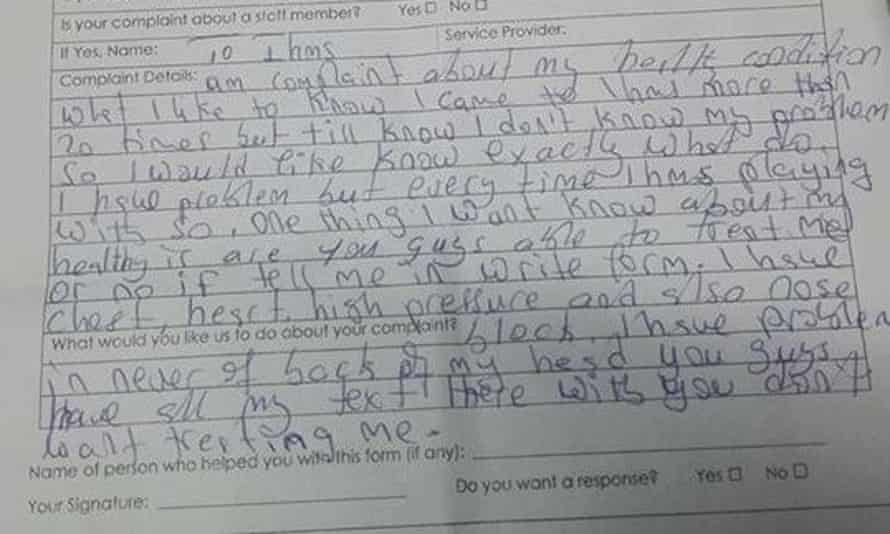 Is your complaint about a staff member? Yes □ No □
If Yes, Name: to Ihms Service Provider:
Complaint Details: am complaint about my healt condition
whet I like to know I came to Ihms more than
20 times but till know I don't know my problem
So I would like know exactly what do.
I have problem but every time Ihms playing
with so, one thing I want know about my
healthy is are you guys able to treat me
or no if tell me in write form. I have
chest, heart, high pressure and also nose
What would you like us to do about your complaint? block. I have problem
in never of back of my head you guys
have all my text there with you don't
want treating me.
Name of person who helped you with this form (if any):
Do you want a response? Yes □ No □
Your Signature: